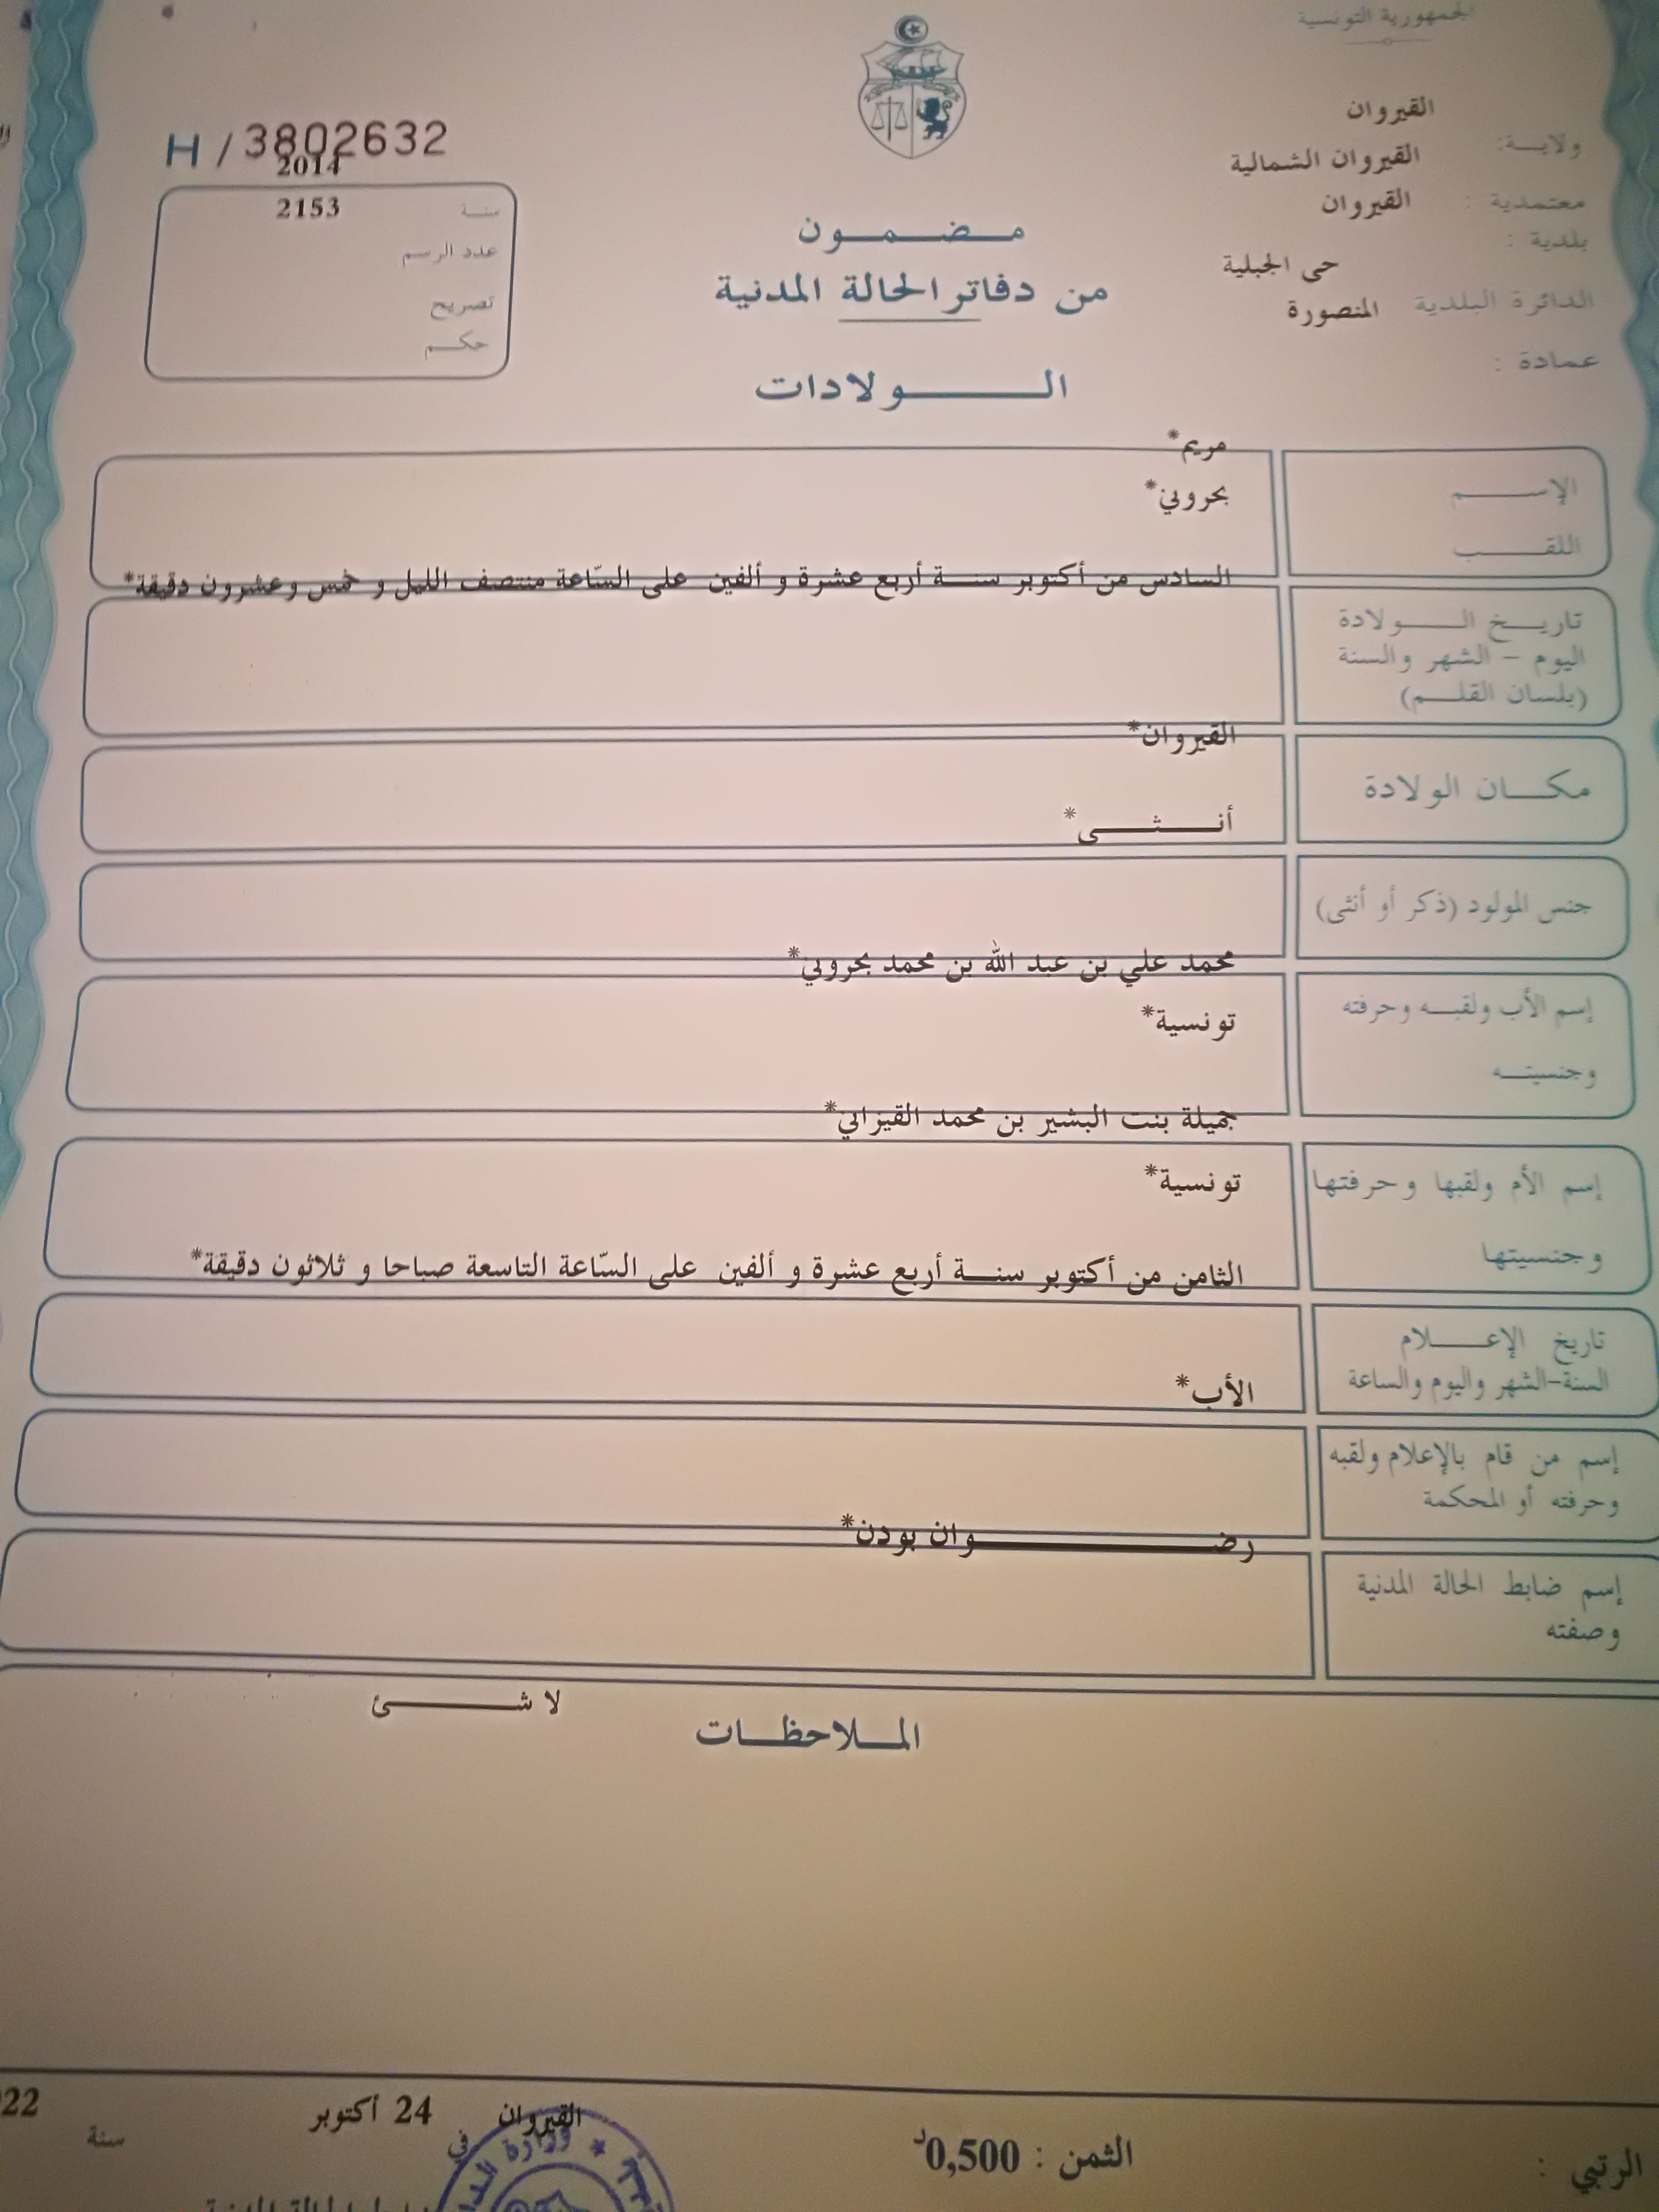 الجمهورية التونسية
ولايــة: القيروان
معتمدية : القيروان الشمالية
بلدية : القيروان
الدائرة البلدية حى الجبلية
عمادة : المنصورة
H / 3802632
2014
سنة 2153
عدد الرسم
تصريح
حكم
مضمون
من دفاتر الحالة المدنية
الولادات
الإسم مريم*
اللقب بحروني*
السادس من أكتوبر سنة أربع عشرة و ألفين على السّاعة منتصف الليل و خمس وعشرون دقيقة*
تاريخ الولادة
اليوم – الشهر والسنة
(بلسان القلم)
القيروان*
مكان الولادة
أنثى*
جنس المولود (ذكر أو أنثى)
محمد علي بن عبد الله بن محمد بحروني*
إسم الأب ولقبه وحرفته
تونسية*
وجنسيته
جميلة بنت البشير بن محمد القيزاني*
إسم الأم ولقبها وحرفتها
تونسية*
وجنسيتها
الثامن من أكتوبر سنة أربع عشرة و ألفين على السّاعة التاسعة صباحا و ثلاثون دقيقة*
تاريخ الإعلام
السنة-الشهر واليوم والساعة
الأب*
إسم من قام بالإعلام ولقبه
وحرفته أو المحكمة
رضوان بودن*
إسم ضابط الحالة المدنية
وصفته
لا شئ
الملاحظات
القيروان في 24 أكتوبر سنة 22
الثمن : 0,500د
الرتبي :
وزارة